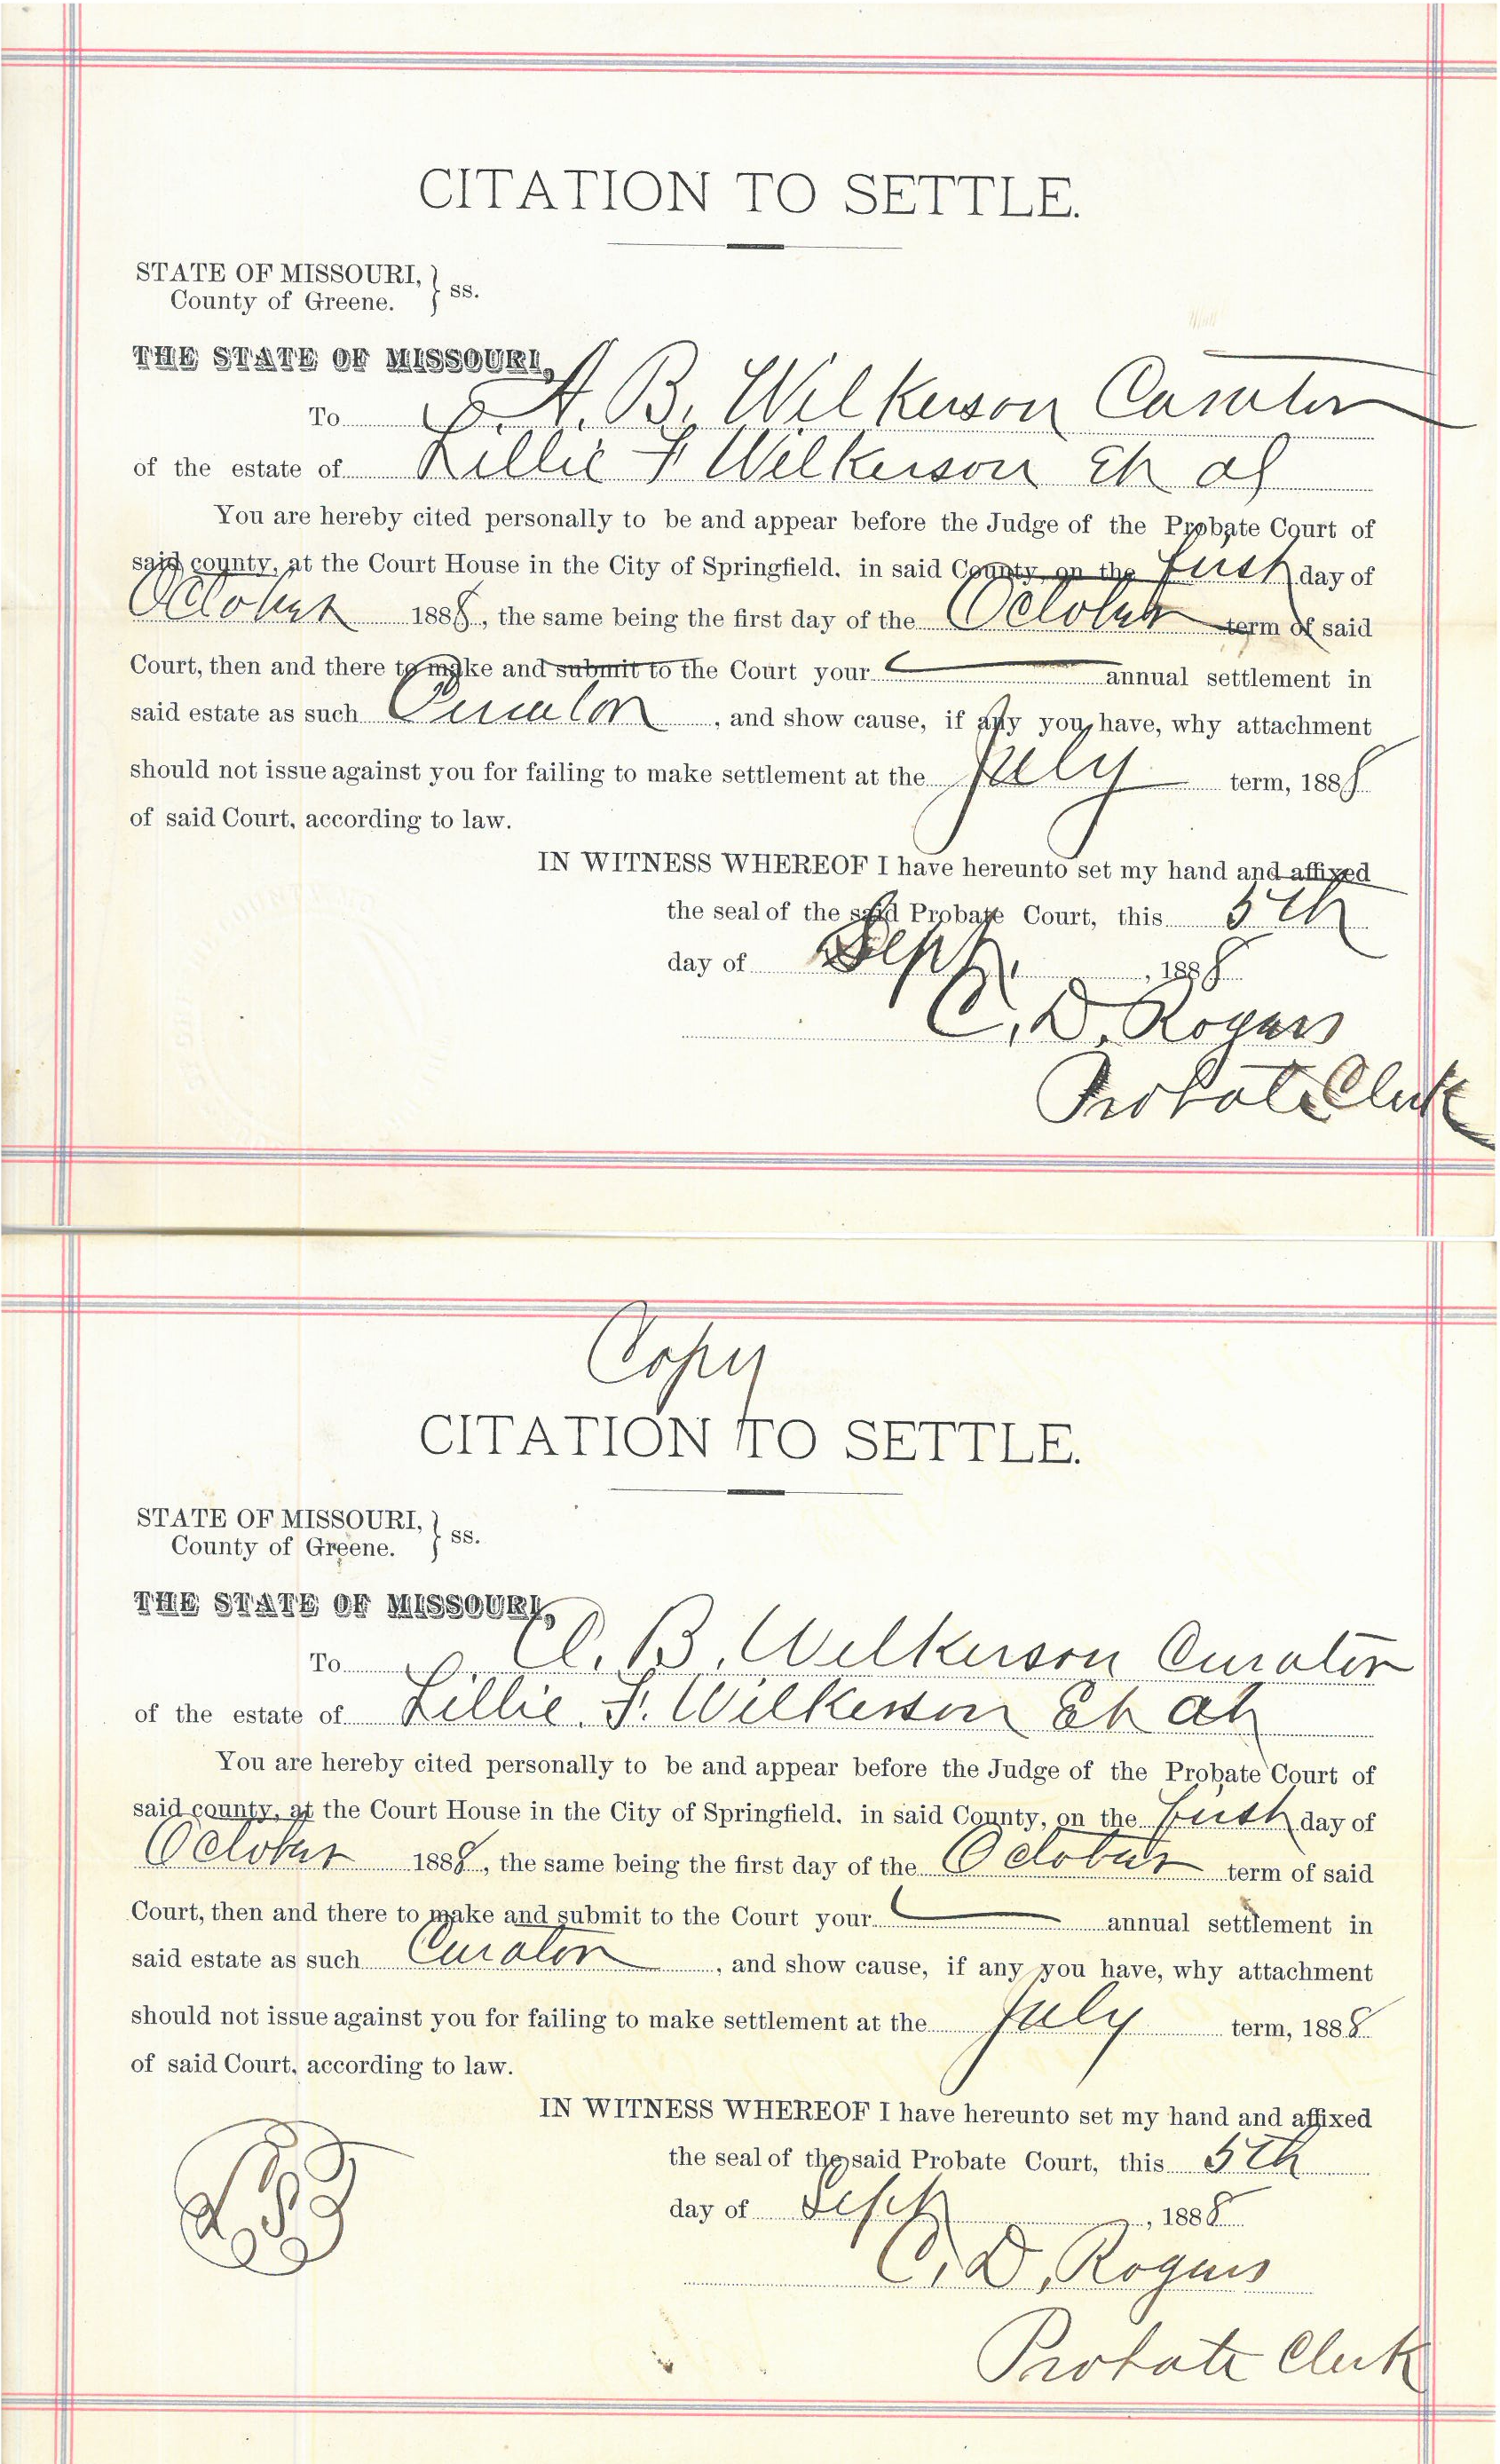 CITATION TO SETTLE.
STATE OF MISSOURI, } ss.
County of Greene.
THE STATE OF MISSOURI,
To A. B. Wilkerson Curator
of the estate of Lillie F Wilkerson et al
You are hereby cited personally to be and appear before the Judge of the Probate Court of
said county, at the Court House in the City of Springfield, in said County, on the first day of
October 1888, the same being the first day of the October term of said
Court, then and there to make and submit to the Court your annual settlement in
said estate as such Curator, and show cause, if any you have, why attachment
should not issue against you for failing to make settlement at the July term, 1888
of said Court, according to law.
IN WITNESS WHEREOF I have hereunto set my hand and affixed
the seal of the said Probate Court, this 5th
day of Sept, 1888
C. D. Rogers
Probate Clerk
Copy
CITATION TO SETTLE.
STATE OF MISSOURI, } ss.
County of Greene.
THE STATE OF MISSOURI,
To A. B. Wilkerson Curator
of the estate of Lillie F. Wilkerson et al
You are hereby cited personally to be and appear before the Judge of the Probate Court of
said county, at the Court House in the City of Springfield, in said County, on the first day of
October 1888, the same being the first day of the October term of said
Court, then and there to make and submit to the Court your annual settlement in
said estate as such Curator, and show cause, if any you have, why attachment
should not issue against you for failing to make settlement at the July term, 1888
of said Court, according to law.
IN WITNESS WHEREOF I have hereunto set my hand and affixed
the seal of the said Probate Court, this 5th
day of Sept, 1888
C. D. Rogers
Probate Clerk